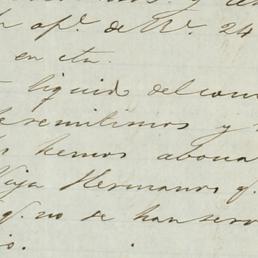 af.º de Wº. 24
en cta.
liquid del con
remitimos y
hemos abona
Vega Hermanos q.
q. no se han serv
io.